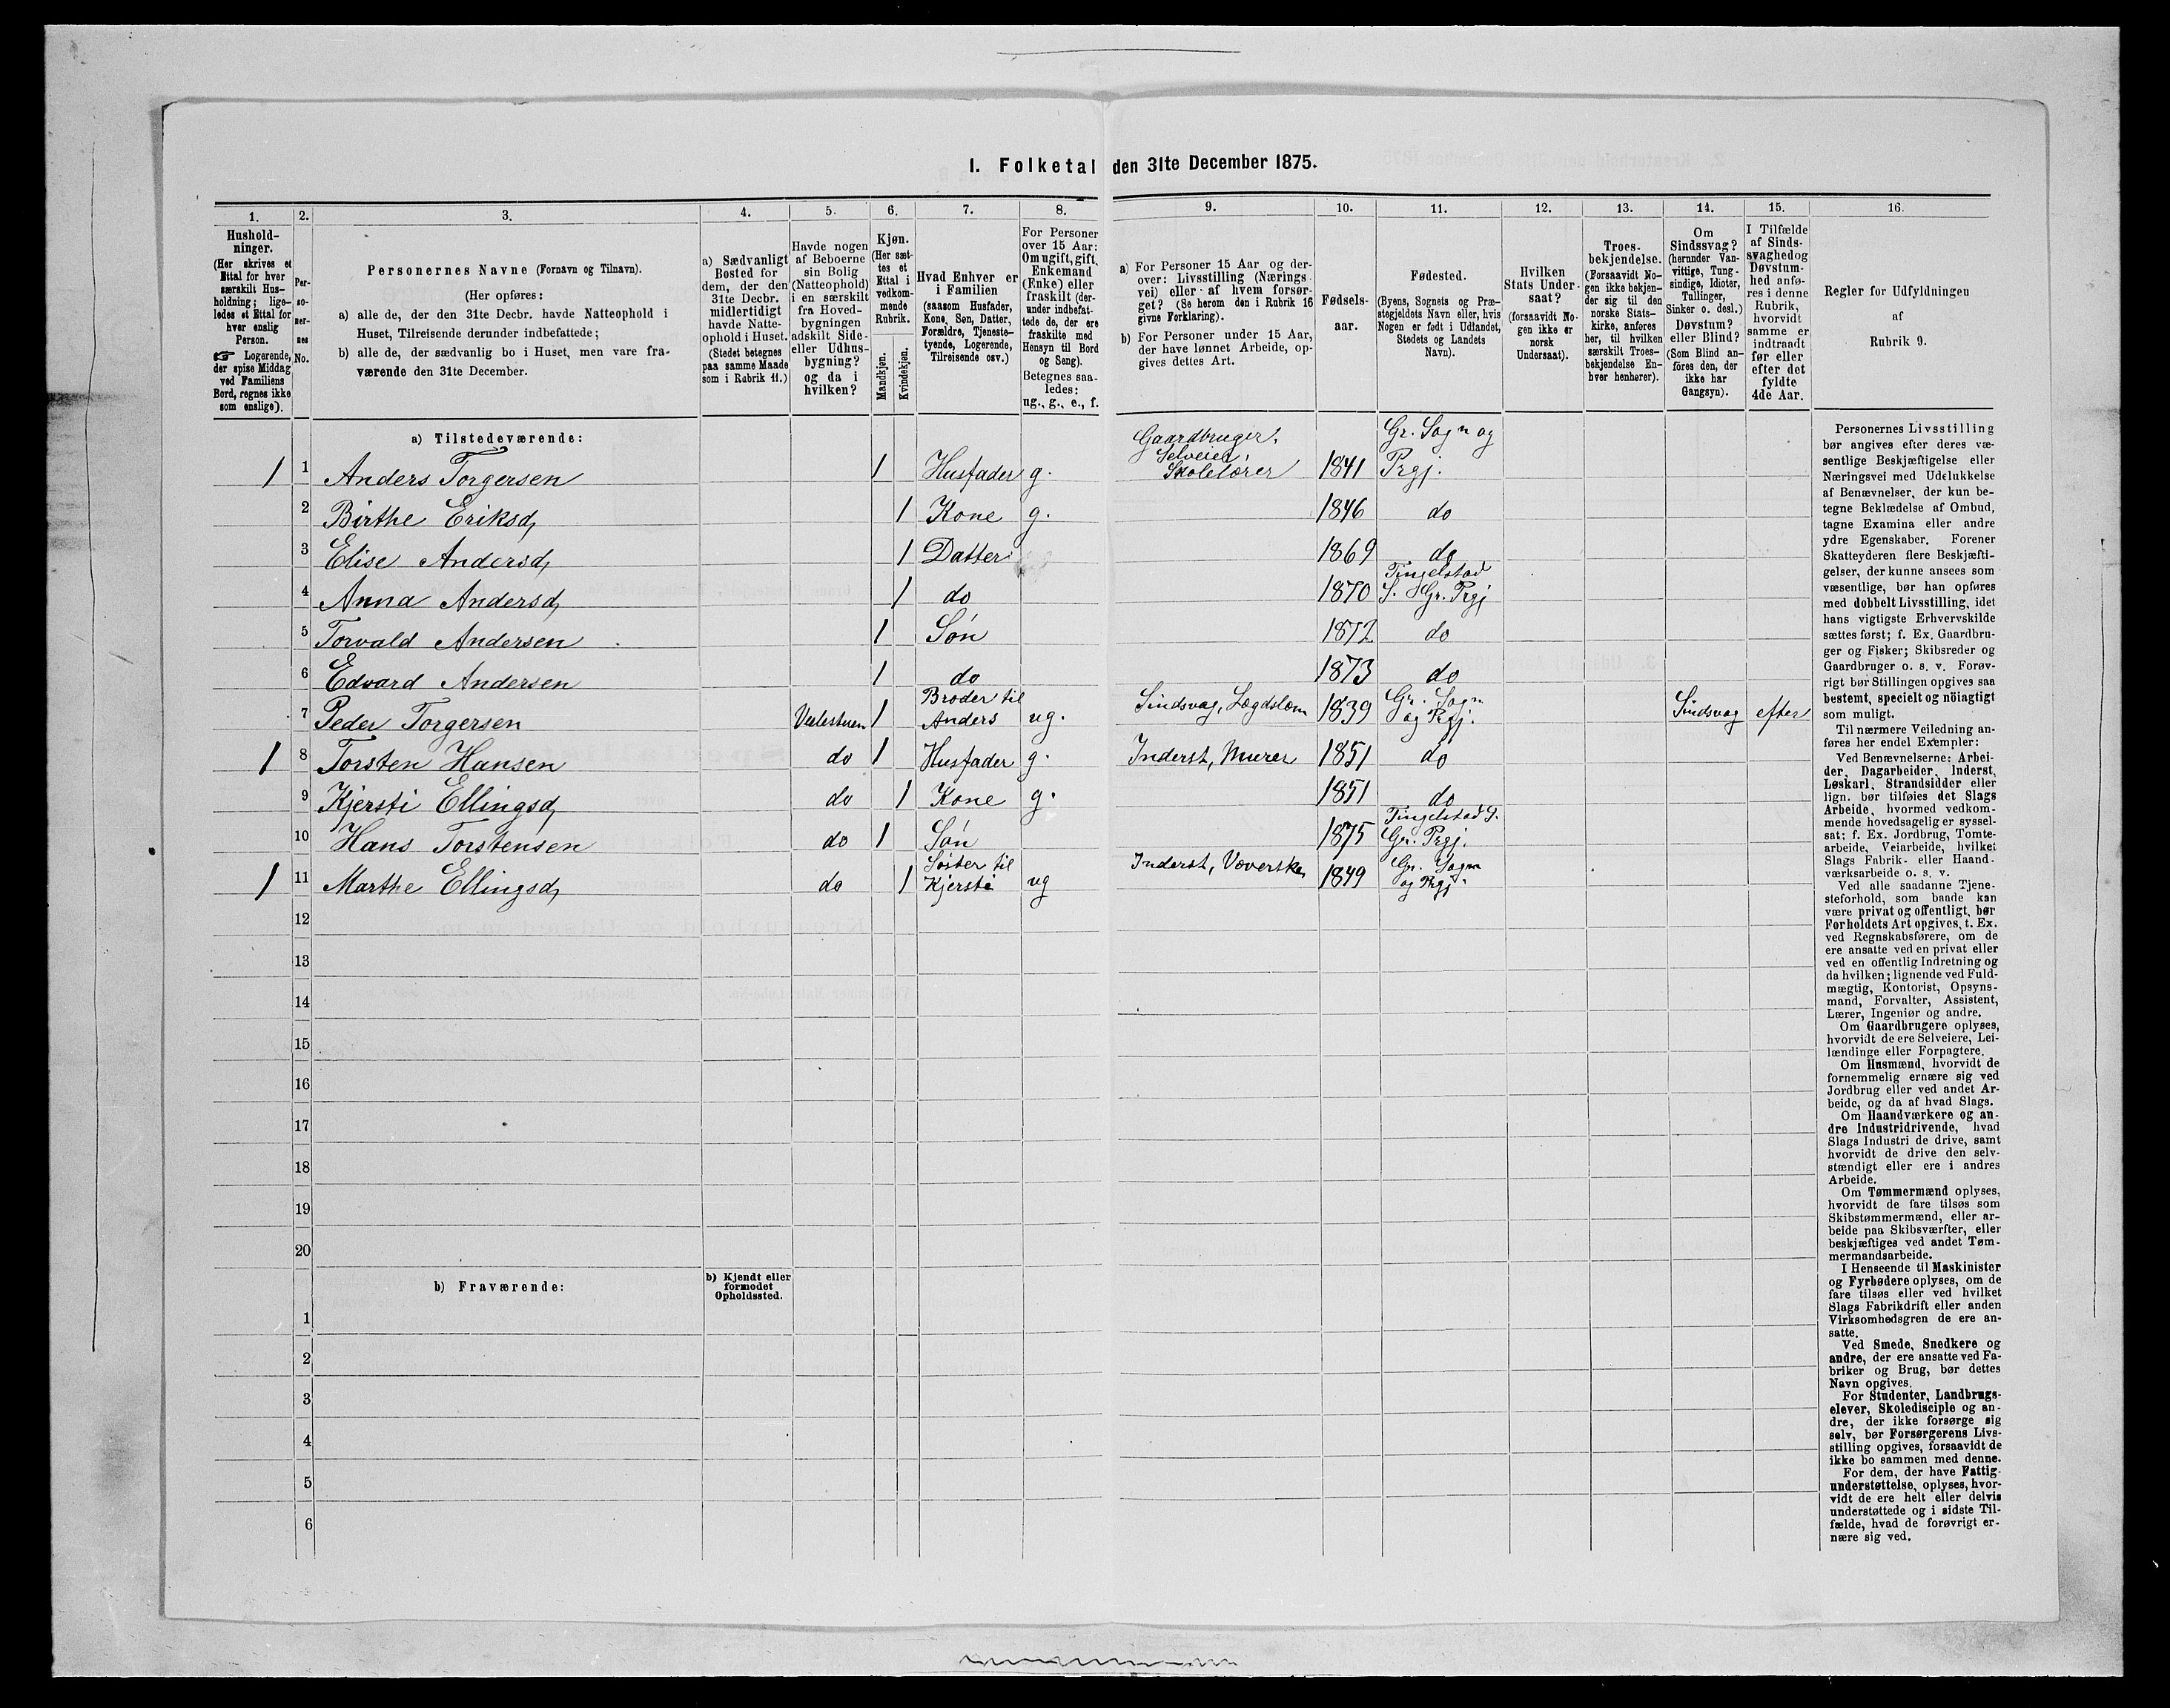 I. Folketal den 31te December 1875.
1. 2. 3. 4. 5. 6. 7. 8. 9. 10. 11. 12. 13. 14. 15. 16.
Hushold-
ninger.
(Her skrives et
Ettal for hver
særskilt Hus-
holdning; lige-
ledes et Ettal for
hver enslig
Person.
☞ Logerende,
der spise Middag
ved Familiens
Bord, regnes ikke
som enslige).
Per-
so-
ner-
nes
No.
Personernes Navne (Fornavn og Tilnavn).
(Her opføres:
a) alle de, der den 31te Decbr. havde Natteophold i
Huset, Tilreisende derunder indbefattede;
b) alle de, der sædvanlig bo i Huset, men vare fra-
værende den 31te December.
a) Sædvanligt
Bosted for
dem, der den
31te Decbr.
midlertidigt
havde Natte-
ophold i Huset.
(Stedet betegnes
paa samme Maade
som i Rubrik 11.)
Havde nogen
af Beboerne
sin Bolig
(Natteophold)
i en særskilt
fra Hoved-
bygningen
adskilt Side-
eller Udhus-
bygning?
og da i
hvilken?
Kjøn.
(Her sæt-
tes et
Ettal i
vedkom-
mende
Rubrik.
Mandkjøn.
Kvindekjøn.
Hvad Enhver er
i Familien
(saasom Husfader,
Kone, Søn, Datter,
Forældre, Tjeneste-
tyende, Logerende,
Tilreisende osv.)
For Personer
over 15 Aar:
Om ugift, gift,
Enkemand
(Enke) eller
fraskilt (der-
under indbefat-
tede de, der ere
fraskilte med
Hensyn til Bord
og Seng).
Betegnes saa-
ledes:
ug., g., e., f.
a) For Personer 15 Aar og der-
over: Livsstilling (Nærings-
vei) eller af hvem forsør-
get? (Se herom den i Rubrik 16
givne Forklaring).
b) For Personer under 15 Aar,
der have lønnet Arbeide, op-
gives dettes Art.
Fødsels-
aar.
Fødested.
(Byens, Sognets og Præ-
stegjeldets Navn eller, hvis
Nogen er født i Udlandet,
Stedets og Landets
Navn).
Hvilken
Stats Under-
saat?
(forsaavidt No-
gen ikke er
norsk
Undersaat).
Troes-
bekjendelse.
(Forsaavidt No-
gen ikke bekjen-
der sig til den
norske Stats-
kirke, anføres
her, til hvilken
særskilt Troes-
bekjendelse En-
hver henhører).
Om
Sindssvag?
(herunder Van-
vittige, Tung-
sindige, Idioter,
Tullinger,
Sinker o. desl.)
Døvstum?
eller Blind?
(Som Blind an-
føres den, der
ikke har
Gangsyn).
I Tilfælde
af Sinds-
svaghed og
Døvstum-
hed anfø-
res i denne
Rubrik,
hvorvidt
samme er
indtraadt
før eller
efter det
fyldte
4de Aar.
Regler for Udfyldningen
af
Rubrik 9.
a) Tilstedeværende:
1 1 Anders Torgersen 1 Husfader g. Gaardbruger, Selveier, Skolelærer 1841 Gr. Sogn og Prgj.
2 Birthe Eriksd, 1 Kone g. 1846 do
3 Elise Andersd, 1 Datter 1869 do
4 Anna Andersd, 1 do 1870 Tingelstad S. Gr. Prgj
5 Torvald Andersen 1 Søn 1872 do
6 Edvard Andersen 1 do 1873 do
7 Peder Torgersen 1 Broder til Anders ug. Sindsvag, Lægdslem 1839 Gr. Sogn og Prgj. Sindsvag efter
1 8 Torsten Hansen do 1 Husfader g. Inderst, Murer 1851 do
9 Kjersti Ellingsd, do 1 Kone g. 1851 do
10 Hans Torstensen do 1 Søn 1875 Tingelstad S. Gr. Prgj.
1 11 Marthe Ellingsd, do 1 Søster til Kjersti ug Inderst, Væverske 1849 Gr. Sogn og Prgj.
12
13
14
15
16
17
18
19
20
b) Fraværende:
b) Kjendt eller
formodet
Opholdssted.
1
2
3
4
5
6
Personernes Livsstilling
bør angives efter deres væ-
sentlige Beskjæftigelse eller
Næringsvei med Udelukkelse
af Benævnelser, der kun be-
tegne Beklædelse af Ombud,
tagne Examina eller andre
ydre Egenskaber. Forener
Skatteyderen flere Beskjæfti-
gelser, der kunne ansees som
væsentlige, bør han opføres
med dobbelt Livsstilling, idet
hans vigtigste Erhvervskilde
sættes først; f. Ex. Gaardbru-
ger og Fisker; Skibsreder og
Gaardbruger o. s. v. Forøv-
rigt bør Stillingen opgives saa
bestemt, specielt og nöiagtigt
som muligt.
Til nærmere Veiledning an-
føres her endel Exempler:
Ved Benævnelserne: Arbei-
der, Dagarbeider, Inderst,
Løskarl, Strandsidder eller
lign. bør tilføies det Slags
Arbeide, hvormed vedkom-
mende hovedsagelig er syssel-
sat; f. Ex. Jordbrug, Tomte-
arbeide, Veiarbeide, hvilket
Slags Fabrik- eller Haand-
værksarbeide o. s. v.
Ved alle saadanne Tjene-
steforhold, som baade kan
være privat og offentligt, bør
Forholdets Art opgives, t. Ex.
ved Regnskabsførere, om de
ere ansatte ved en privat eller
ved en offentlig Indretning og
da hvilken; lignende ved Fuld-
mægtig, Kontorist, Opsyns-
mand, Forvalter, Assistent,
Lærer, Ingeniør og andre.
Om Gaardbrugere oplyses,
hvorvidt de ere Selveiere, Lei-
lændinge eller Forpagtere.
Om Husmænd, hvorvidt de
fornemmelig ernære sig ved
Jordbrug eller ved andet Ar-
beide, og da af hvad Slags.
Om Haandværkere og an-
dre Industridrivende, hvad
Slags Industri de drive, samt
hvorvidt de drive den selv-
stændigt eller ere i andres
Arbeide.
Om Tømmermænd oplyses,
hvorvidt de fare tilsøs som
Skibstømmermænd, eller ar-
beide paa Skibsværfter, eller
beskjæftiges ved andet Tøm-
mermandsarbeide.
I Henseende til Maskinister
og Fyrbødere oplyses, om de
fare tilsøs eller ved hvilket
Slags Fabrikdrift eller anden
Virksomhedsgren de ere an-
satte.
Ved Smede, Snedkere og
andre, der ere ansatte ved Fa-
briker og Brug, bør dettes
Navn opgives.
For Studenter, Landbrugs-
elever, Skoledisciple og an-
dre, der ikke forsørge sig
selv, bør Forsørgerens Livs-
stilling opgives, forsaavidt de
ikke bo sammen med denne.
For dem, der have Fattig-
understøttelse, oplyses, hvor-
vidt de ere helt eller delvis
understøttede og i sidste Til-
fælde, hvad de forøvrigt er-
nære sig ved.